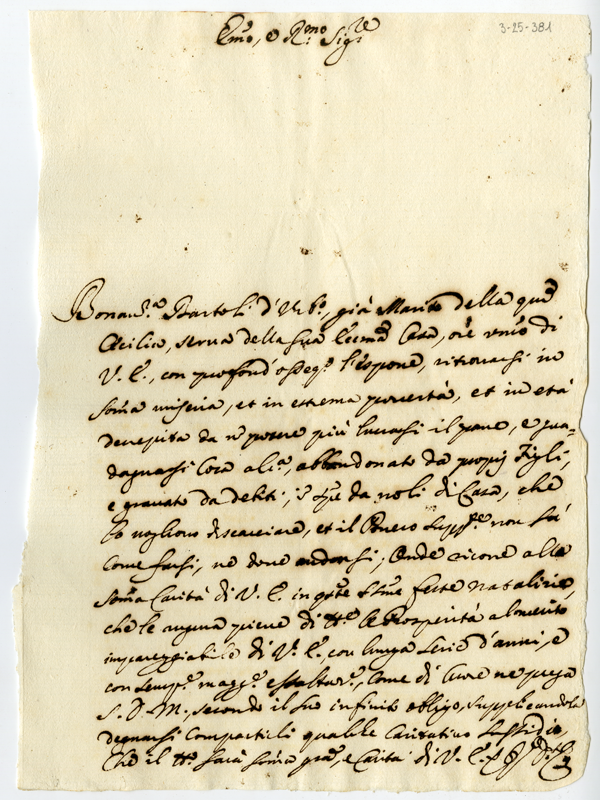 Emo, e Rmo Sigre
3-25-381
Bonavra Bartoli d'Urbo, già Marito della qm
Cecilia, serva della sua Eccma Casa, ore umo di
V. E., con profond'osseqo l'espone, ritrovarsi in
soma miseria, et in estrema povertà, et in età
decrepita da ñ potere più lucrarsi il pane, e gua=
dagnarsi cosa alca, abbandonato da proprj Figli,
e gravato da debiti, di Casa, che
lo vogliono discacciare, et il Povero Suppte non sà
come farsi, ne dove andarsi; Onde ricorre alla
soma Carità di V. E. in qste Sme feste natalizie,
che le augura piene di tte le Prosperità al merito
impareggiabile di V. E. con lunga serie d'anni, e
con sempe magge esaltane, come di cuore ne prega
S. D. M. secondo il suo infinito obligo, supplicandola
degnarsi compartirli qualche Caritativo sussidio,
Che il tto sarà soma gra, e Carità di V. E.